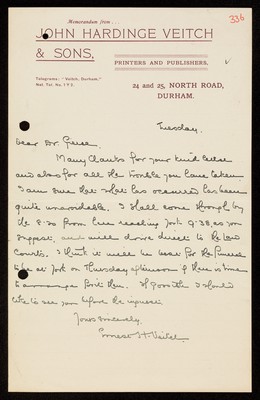 336
Memorandum from...
JOHN HARDINGE VEITCH
& SONS,
PRINTERS AND PUBLISHERS,
Telegrams: "Veitch, Durham."
Nat. Tel. No. 192.
24 and 25, NORTH ROAD,
DURHAM.
Tuesday.
Dear Dr.
Many thanks for your kind letter
and also for all the trouble you have taken
I am sure that what has occurred has been
quite unavoidable. I shall come through by
the 8-20 from here reaching York 9.38, as you
suggest, and will drive direct to the Law
Courts. I think it will be best for the funeral
to be at York on Thursday afternoon if there is time
to arrange for it then. If possible I should
like to see you before the inquest.
Yours sincerely,
Ernest H. Veitch